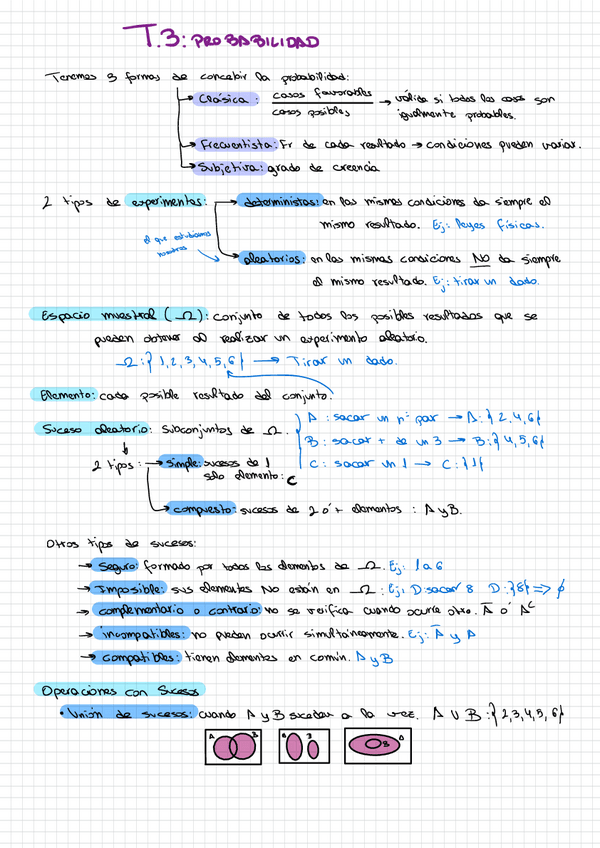 T.3: PROBABILIDAD
Tenemos 3 formas de concebir la probabilidad:
Clásica: casos favorables / casos posibles → válida si todos los casos son
igualmente probables.
Frecuentista: Fr de cada resultado → condiciones pueden variar.
Subjetiva: grado de creencia
2 tipos de experimentos: deterministas: en las mismas condiciones da siempre el
mismo resultado. Ej: leyes físicas.
el que estudiamos
nosotros
aleatorios: en las mismas condiciones NO da siempre
el mismo resultado. Ej: tirar un dado.
Espacio muestral (Ω): conjunto de todos los posibles resultados que se
pueden obtener al realizar un experimento aleatorio.
Ω: {1, 2, 3, 4, 5, 6} → Tirar un dado.
Elemento: cada posible resultado del conjunto.
Suceso aleatorio: subconjuntos de Ω.
A: sacar un nº par → A: {2, 4, 6}
B: sacar + de un 3 → B: {4, 5, 6}
C: sacar un 1 → C: {1}
2 tipos: → simple: sucesos de 1
solo elemento: C
→ compuesto: sucesos de 2 ó + elementos: A y B.
Otros tipos de sucesos:
→ Seguro: formado por todos los elementos de Ω. Ej: 1 a 6
→ Imposible: sus elementos No están en Ω: Ej: D: sacar 8 D: {8} => ∅
→ complementario o contrario: no se verifica cuando ocurre otro. A̅ ó Aᶜ
→ incompatibles: no pueden ocurrir simultáneamente. Ej: A̅ y A
→ compatibles: tienen elementos en común. A y B
Operaciones con Sucesos
• Unión de sucesos: cuando A y B suceden a la vez. A ∪ B: {2, 3, 4, 5, 6}
A B
A B
B A